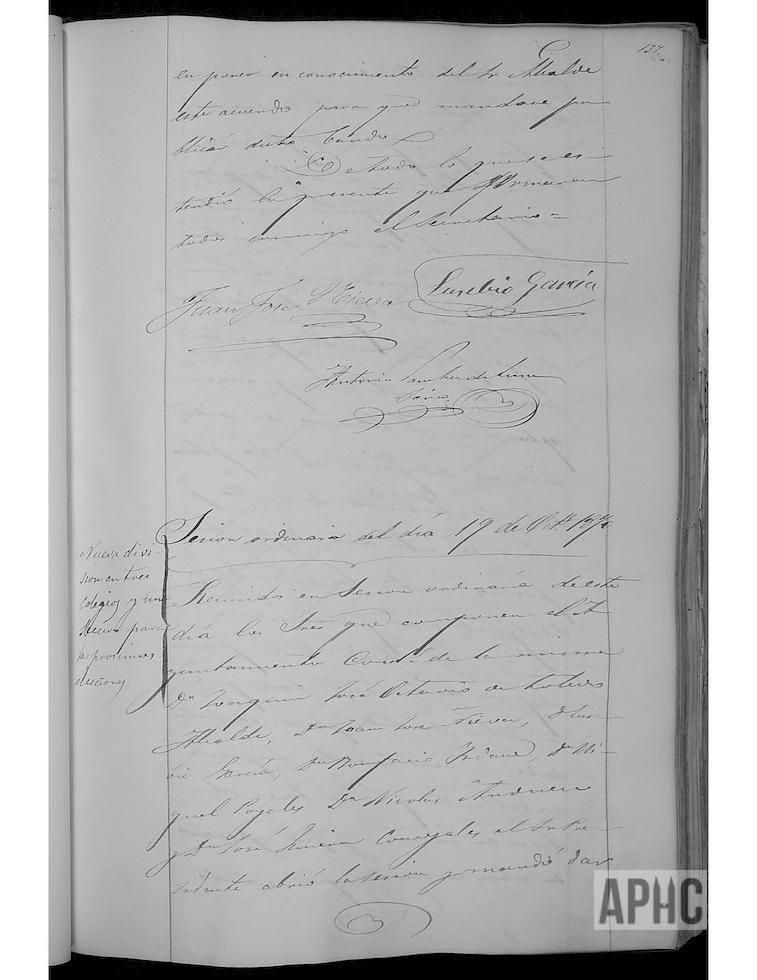 137.
en poner en conocimiento del Sr Alcalde
este acuerdo para que mandase pu-
blicar dicho bando
De todo lo que se es-
tendió la presente que firmaron
todos conmigo el Secretario =
Juan José Eusebio García
Antonio Sanchez de Luna
Srio.
Sesion ordinaria del día 19 de Octe 1870
Nueva divi-
sion en tres
colegios y una
seccion para
las proximas
elecciones.
Reunidos en Sesion ordinaria de este
día los Sres que componen el A-
yuntamiento Conal de la misma
Dn Joaquin José de Toledo
Alcalde, Dn Juan José Euse-
bio García, Dn Bonifacio Dn Mi-
guel Poyales Dn Nicolas Andreu
y Dn José Concejales el Sr Pre-
sidente abrió la sesion y mandó dar
APHC